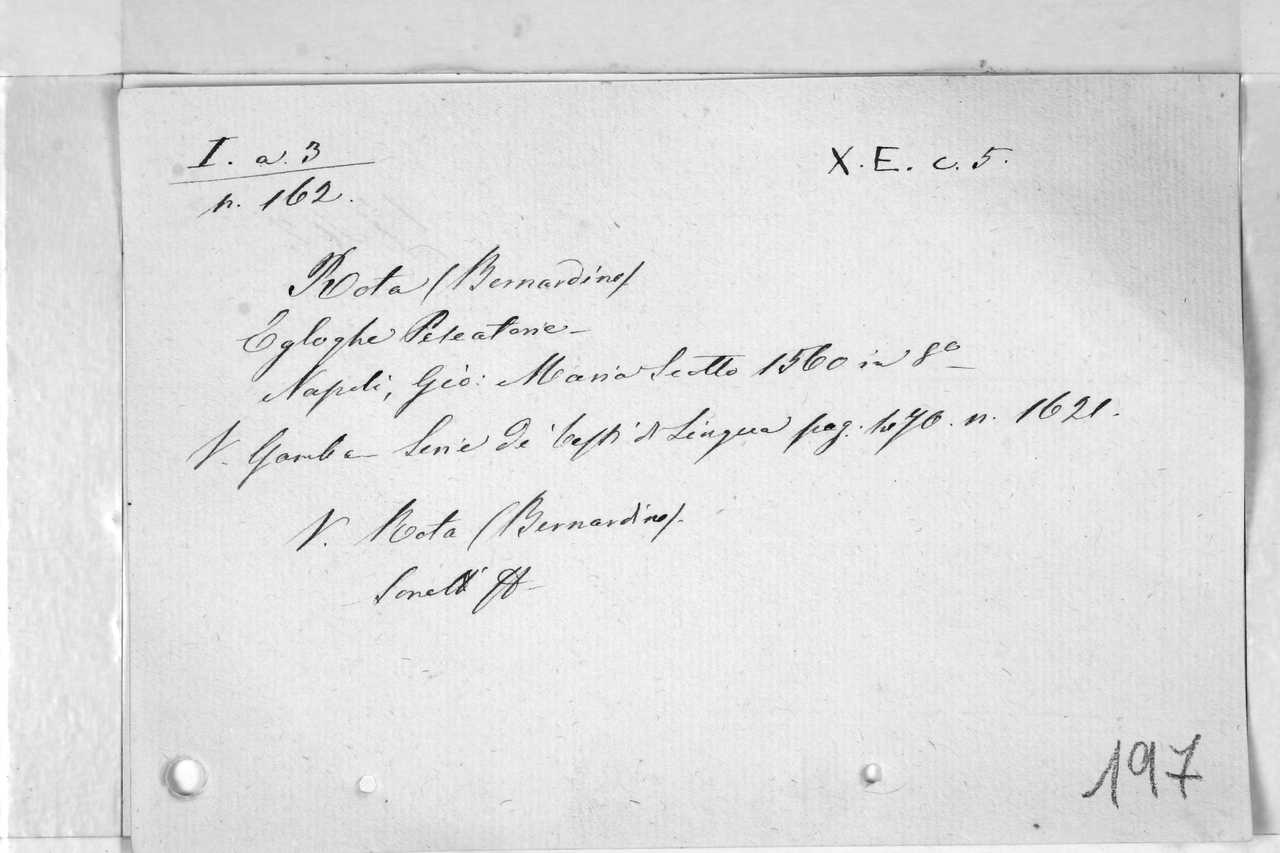 I. a. 3
n. 162.
X. E. c. 5.
Rota (Bernardino)
Egloghe Pescatorie
Napoli, Gio: Maria Scotto 1560 in 8º
V. Gamba Serie de' Testi di Lingua pag. 470. n. 1621.
V. Rota (Bernardino).
Sonetti
197